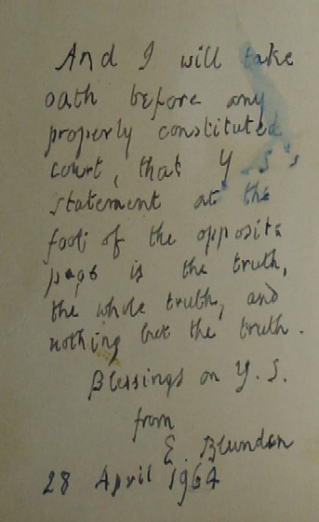 And I will take
oath before any
properly constituted
court, that Y. S.'s
statement at the
foot of the opposite
page is the truth,
the whole truth, and
nothing but the truth.
Blessings on Y. S.
from
E. Blunden
28 April 1964